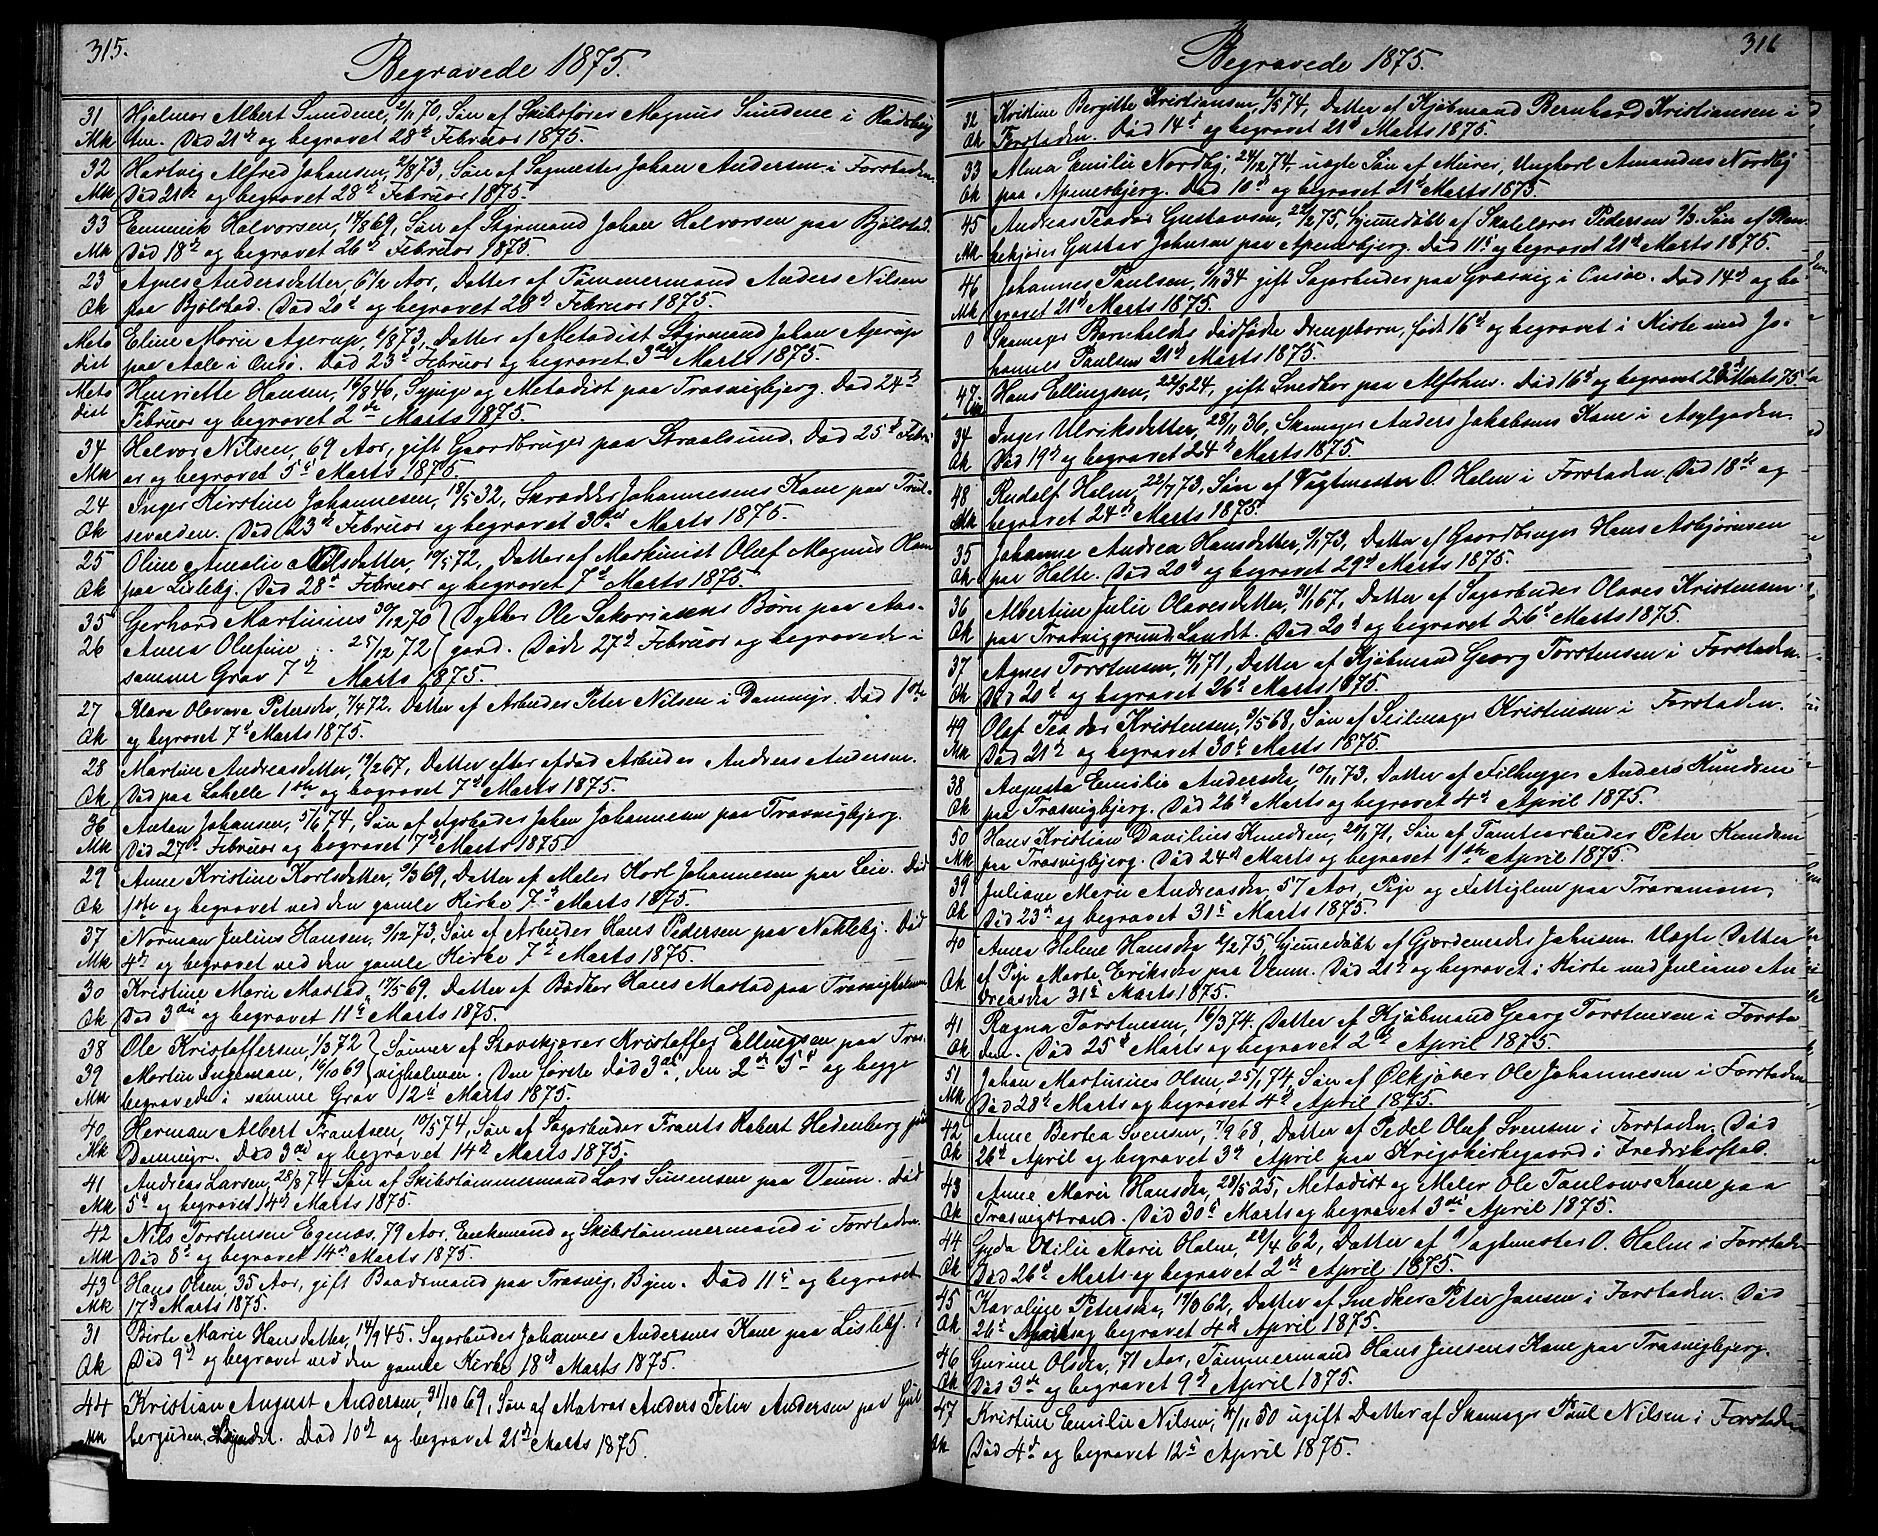 315.
Begravede 1875.
31 Hjalmar Albert Sundene, 2/1 70, Søn af Skibsfører Magnus Sundene i
Mk Død 21de og begravet 28de Februar 1875.
32 Hartvig Alfred Johansen, 2/8 73, Søn af Sagmester Johan Andersen i Forstaden.
Mk Død 21de og begravet 28de Februar 1875.
33 Emmerik Halvorsen, 14/8 69, Søn af Styrmand Johan Halvorsen paa Bjølstad.
Mk Død 18de og begravet 26de Februar 1875.
23 Agnes Andersdatter, 6 1/2 Aar, Datter af Tømmermand Anders Nilsen
Qk paa Bjølstad. Død 20de og begravet 28de Februar 1875.
Meto Eline Marie Agerup, 1/8 73, Datter af Metodist Styrmand Johan Agerup
dist paa Aale i Onsø. Død 23de Februar og begravet 3die Marts 1875.
Meto Henriette Hansen, 16/8 46, Sypige og Metodist paa Trosvigbjerg. Død 24de
dist Februar og begravet 2den Marts 1875.
34 Halvor Nilsen, 69 Aar, gift Gaardbruger paa Straalsund. Død 25de Febru-
Mk ar og begravet 5te Marts 1875.
24 Inger Kirstine Johannesen, 18/5 32, Skrædder Johannesens Kone paa Trul-
Qk sevolden. Død 23de Februar og begravet 3die Marts 1875.
25 Oline Amalie Olsdatter, 19/1 72, Datter af Maskinist Oluf Magnus
Qk paa Lisleby. Død 28de Februar og begravet 7de Marts 1875.
35 Gerhard Martinius 30/12 70 } Dykker Ole Sakariasens Børn paa Aas-
26 Anna Olufine 25/12 72 } gard. Døde 27de Februar og begravede i
samme Grav 7de Marts 1875.
27 Klara Olovava Petersdr, 7/4 72. Datter af Arbeider Peter Nilsen i Dammyr. Død 1ste
Qk og begravet 7de Marts 1875.
28 Martine Andreasdatter, 19/2 67, Datter efter afdød Arbeider Andreas Andersen.
Qk Død paa Lahelle 1ste og begravet 7de Marts 1875.
36 Anton Johansen, 5/6 74, Søn af Arbeider Johan Johannesen paa Trosvigbjerg.
Mk Død 27de Februar og begravet 7de Marts 1875.
29 Anne Kristine Karlsdatter, 9/3 69, Datter af Maler Karl Johannesen paa Leie. Død
Qk 1ste og begravet ved den gamle Kirke 7de Marts 1875.
37 Norman Julius Hansen, 9/12 73, Søn af Arbeider Hans Pedersen paa Nokleby. Død
Mk 4de og begravet ved den gamle Kirke 7de Marts 1875.
30 Kristine Marie Mastad, 17/5 69, Datter af Bødker Hans Mastad paa Trosvigholmen
Qk Død 3die og begravet 11te Marts 1875.
38 Ole Kristoffersen, 1/3 72 } Sønner af Stovekjører Kristoffer Ellingsen paa Tros-
39 Martin Ingeman, 16/10 69 } vigholmen. Den første død 3die, den 2den 5te og begge
Mk begravede i samme Grav 12te Marts 1875.
40 Herman Albert Frantsen, 10/5 74, Søn af Sagarbeider Frants Robert Hedenberg paa
Mk Dammyr. Død 3die og begravet 14de Marts 1875.
41 Andreas Larsen, 28/8 74 Søn af Skibstømmermand Lars Simensen paa Veum. Død
Mk 5te og begravet 14de Marts 1875.
42 Nils Torstensen Egenæs, 79 Aar, Enkemand og Skibstømmermand i Forstaden.
Mk Død 8de og begravet 14de Marts 1875.
43 Hans Olsen, 35 Aar, gift Baadsmand paa Trosvig, Byen. Død 11te og begravet
Mk 17de Marts 1875.
31 Birte Marie Hansdatter, 14/9 45. Sagarbeider Johannes Andersens Kone paa Lisleby.
Qk Død 9de og begravet ved den gamle Kirke 18de Marts 1875.
44 Kristian August Andersen, 31/10 69, Søn af Matros Anders Peter Andersen paa Gul-
Mk bergløden, Død 10de og begravet 21de Marts 1875.
316
Begravede 1875.
32 Kristine Birgitte Kristiansen, 2/5 74, Datter af Kjøbmand Bernhard Kristiansen i
Qk Forstaden. Død 14de og begravet 21de Marts 1875.
33 Alma Emilie Nordby, 24/12 74, uægte af Murer, Ungkarl Amandus Nordby
Qk paa Apenesbjerg. Død 10de og begravet 21de Marts 1875.
45 Andreas Teodor Gustavsen, 20/2 75, Hjemmedøbt af Skolelærer Pedersen 9/3. Søn af
Mk Gustav Johnsen paa Apenesbjerg. Død 11te og begravet 21de Marts 1875.
46 Johannes Paulsen, 9/1 34 gift Sagarbeider paa Græsvig i Onsøe. Død 14de og be-
Mk gravet 21de Marts 1875.
0 Skomager Bernholdts dødfødte Drengebarn, født 16de og begravet i Kiste med Jo-
hannes Paulsen 21de Marts 1875.
47 Hans Ellingsen, 22/5 24, gift Snedker paa Alfshus. Død 16de og begravet Marts 75
34 Inger Ulriksdatter, 28/11 36, Skomager Anders Jakobsens Kone i Asylgaden.
Qk Død 19de og begravet 24de Marts 1875.
48 Rudolf Holm, 22/7 73, Søn af Vagtmester O. Holm i Forstaden. Død 18de og
Mk begravet 24de Marts 1875.
35 Johanne Andrea Hansdatter, 9/1 73, Datter af Gaardbruger Hans Asbjørnsen
Qk paa Holte. Død 20de og begravet 29de Marts 1875.
36 Albertine Julie Olavesdatter, 31/1 67, Datter af Sagarbeider Olaves Kristensen
Qk paa Trosviggrund, Landet. Død 20de og begravet 26de Marts 1875.
37 Agnes Torstensen, 4/1 71, Datter af Kjøbmand Georg Torstensen i Forstaden.
Qk Død 20de og begravet 26de Marts 1875.
49 Olaf Teodor Kristensen, 9/5 68, Søn af Seilmager Kristensen i Forstaden.
Mk Død 21de og begravet 30te Marts 1875.
38 Augusta Emilie Andersdr, 10/11 73. Datter af Filhugger Anders Knudsen
Qk paa Trosvigbjerg. Død 26de Marts og begravet 4de April 1875.
50 Hans Kristian Davilius Knudsen, 20/1 71, Søn af Tomtearbeider Peter Knudsen
Mk paa Trosvigbjerg. Død 24de Marts og begravet 1ste April 1875.
39 Juliane Marie Andreasdr, 57 Aar, Pige og Fattiglem paa Traramoen,
Qk Død 23de og begravet 31te Marts 1875.
40 Anna Helene Hansdr 2/2 75 Hjemmedøbt af Gjordemoder Johnsen. Uægte Datter
Qk af Pige Marte Eriksdr paa Veum. Død 21de og begravet i Kiste med Juliane An-
dreasdr 31te Marts 1875.
41 Ragna Torstensen, 16/3 74. Datter af Kjøbmand Georg Torstensen i Forsta
Qk den. Død 25de Marts og begravet 2den April 1875.
51 Johan Martinius Olsen, 25/1 74, Søn af Ølkjører Ole Johannesen i Forstaden
Mk Død 28de Marts og begravet 4de April 1875.
42 Anne Bertea Svensen, 7/9 68, Datter af Pedel Oluf Svensen i Forstaden. Død
Qk 26de April og begravet 3die April paa Krigskirkegaard i Fredrikstad.
43 Anne Marie Hansdr, 28/5 25, Metodist og Maler Ole Paulovs Kone paa
Qk Trosvigstrand. Død 30te Marts og begravet 3die April 1875.
44 Gyda Otilie Marie Holm, 20/4 62, Datter af Vagtmester O. Holm i Forstaden
Qk Død 26de Marts og begravet 2den April 1875.
45 Karoline Petersdr, 19/8 62, Datter af Snedker Peter Jansen i Forstaden. Død
Qk 26de og begravet 4de April 1875.
46 Gurine Olsdr, 71 Aar, Tømmermand Hans Jensens Kone paa Trosvigbjerg.
Qk Død 3die og begravet 9de April 1875.
47 Kristine Emilie Nilsen, 4/11 50 ugift Datter af Skomager Paul Nilsen i Forstaden
Qk Død 4de og begravet 12te April 1875.